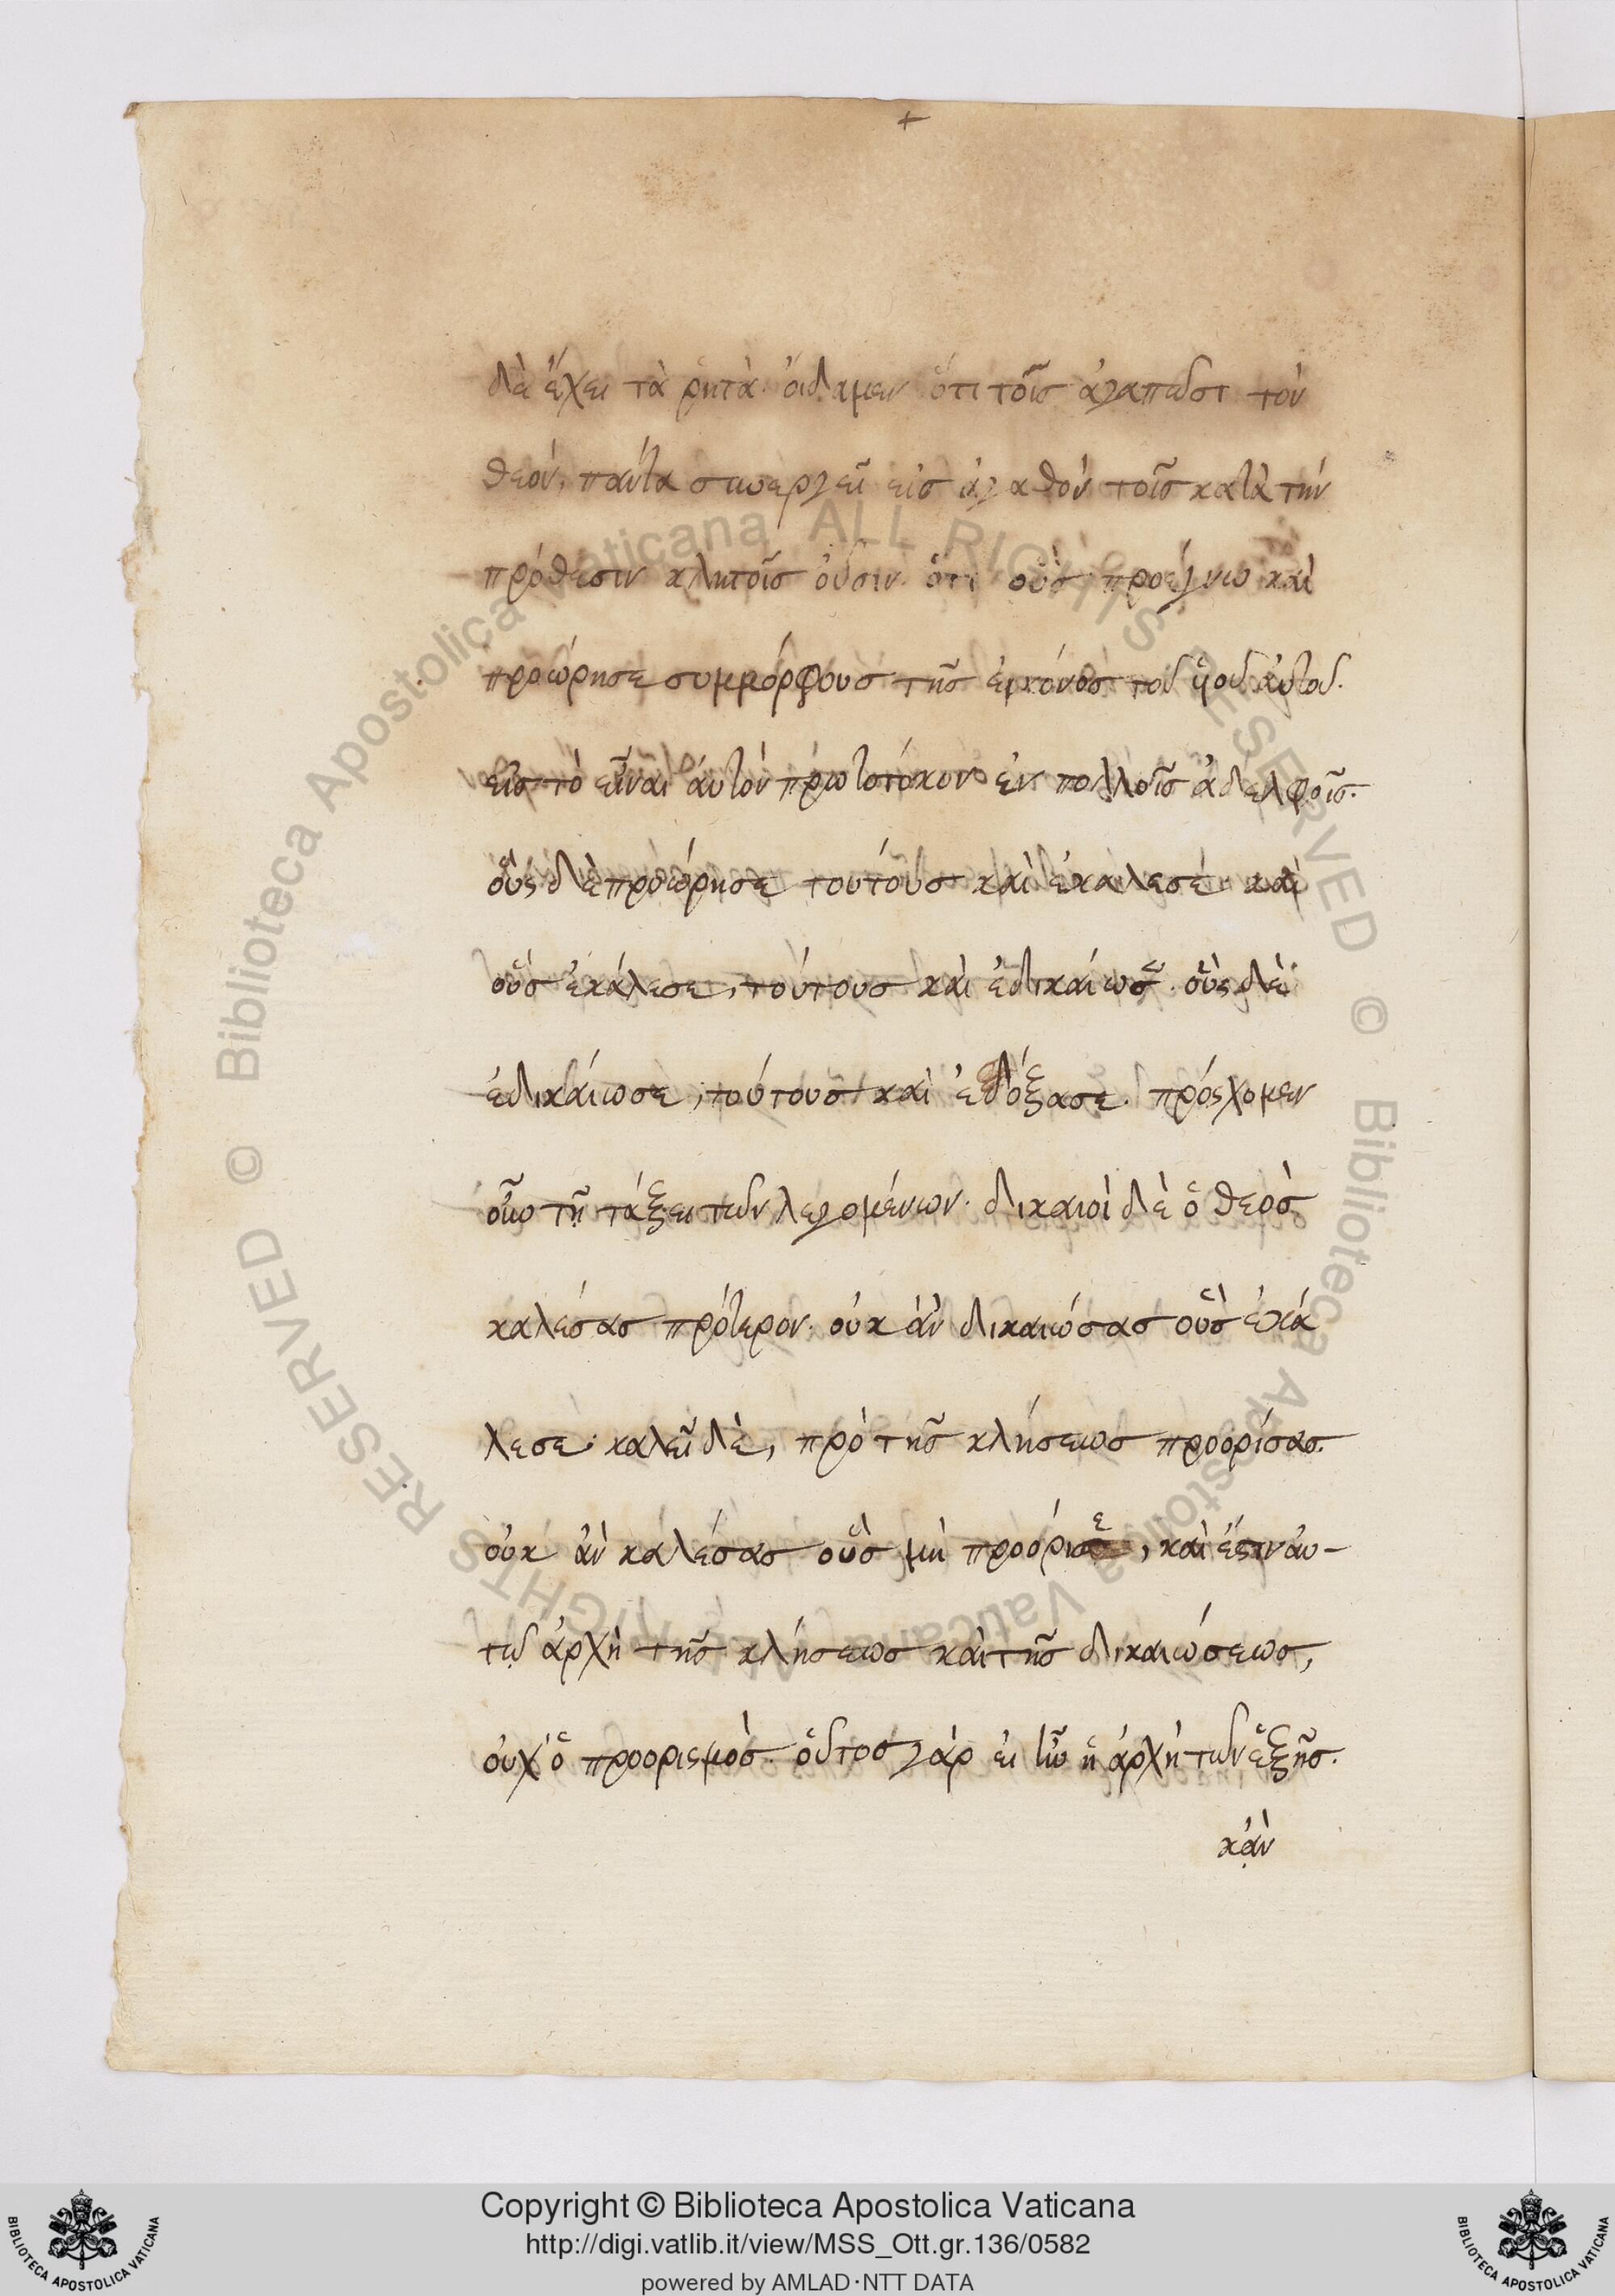 δὲ ἔχει τὰ ῥητὰ· ὀίδαμεν ὅτι τοῖς ἀγαπῶσι τὸν
θεόν, πάντα συνεργεῖ εἰς ἀγαθόν τοῖς κατὰ τήν
πρόθεσιν κλητοῖς οὖσιν· ὅτι οὓς προέγνω καὶ
προώρησε συμμόρφους τῆς ἐικόνος τοῦ ὑιοῦ ἀυτοῦ.
εἰς τὸ εἶναι ἀυτὸν πρωτοτόκον ἐν πολλοῖς ἀδελφοῖς.
οὕς δὲ προώρησε τουτους καὶ ἐκαλεσέ· καὶ
οὓς ἐκάλεσε, τούτους καὶ ἐδικαίωσε· οὓς δὲ
ἐδικάιωσε, τούτους καὶ ἐδόξασε. πρόςχομεν
οὖν τῇ τάξει τῶν λεγομένων· δικαιοὶ δὲ ὁ θεὸς
καλέσας πρότερον· οὐκ ἂν δικαιώσας οὓς ἐκά
λεσε· καλεῖ δὲ, πρὸ τῆς κλήσεως προορίσας.
οὐκ ἂν καλέσας οὓς μὴ προόρισε, καὶ ἔστιν ἀυ-
τῷ ἀρχὴ τῆς κλήσεως καὶ τῆς δικαιώσεως,
οὐχ' ὁ προορισμὸς· οὗτος γὰρ εἰ ἦν ἡ ἀρχὴ τῶν ἑξῆς.
κἂν
Copyright © Biblioteca Apostolica Vaticana
http://digi.vatlib.it/view/MSS_Ott.gr.136/0582
powered by AMLAD·NTT DATA
BIBLIOTECA APOSTOLICA VATICANA
BIBLIOTECA APOSTOLICA VATICANA
© Biblioteca Apostolica Vaticana ALL RIGHTS RESERVED © Biblioteca Apostolica Vaticana ALL RIGHTS RESERVED